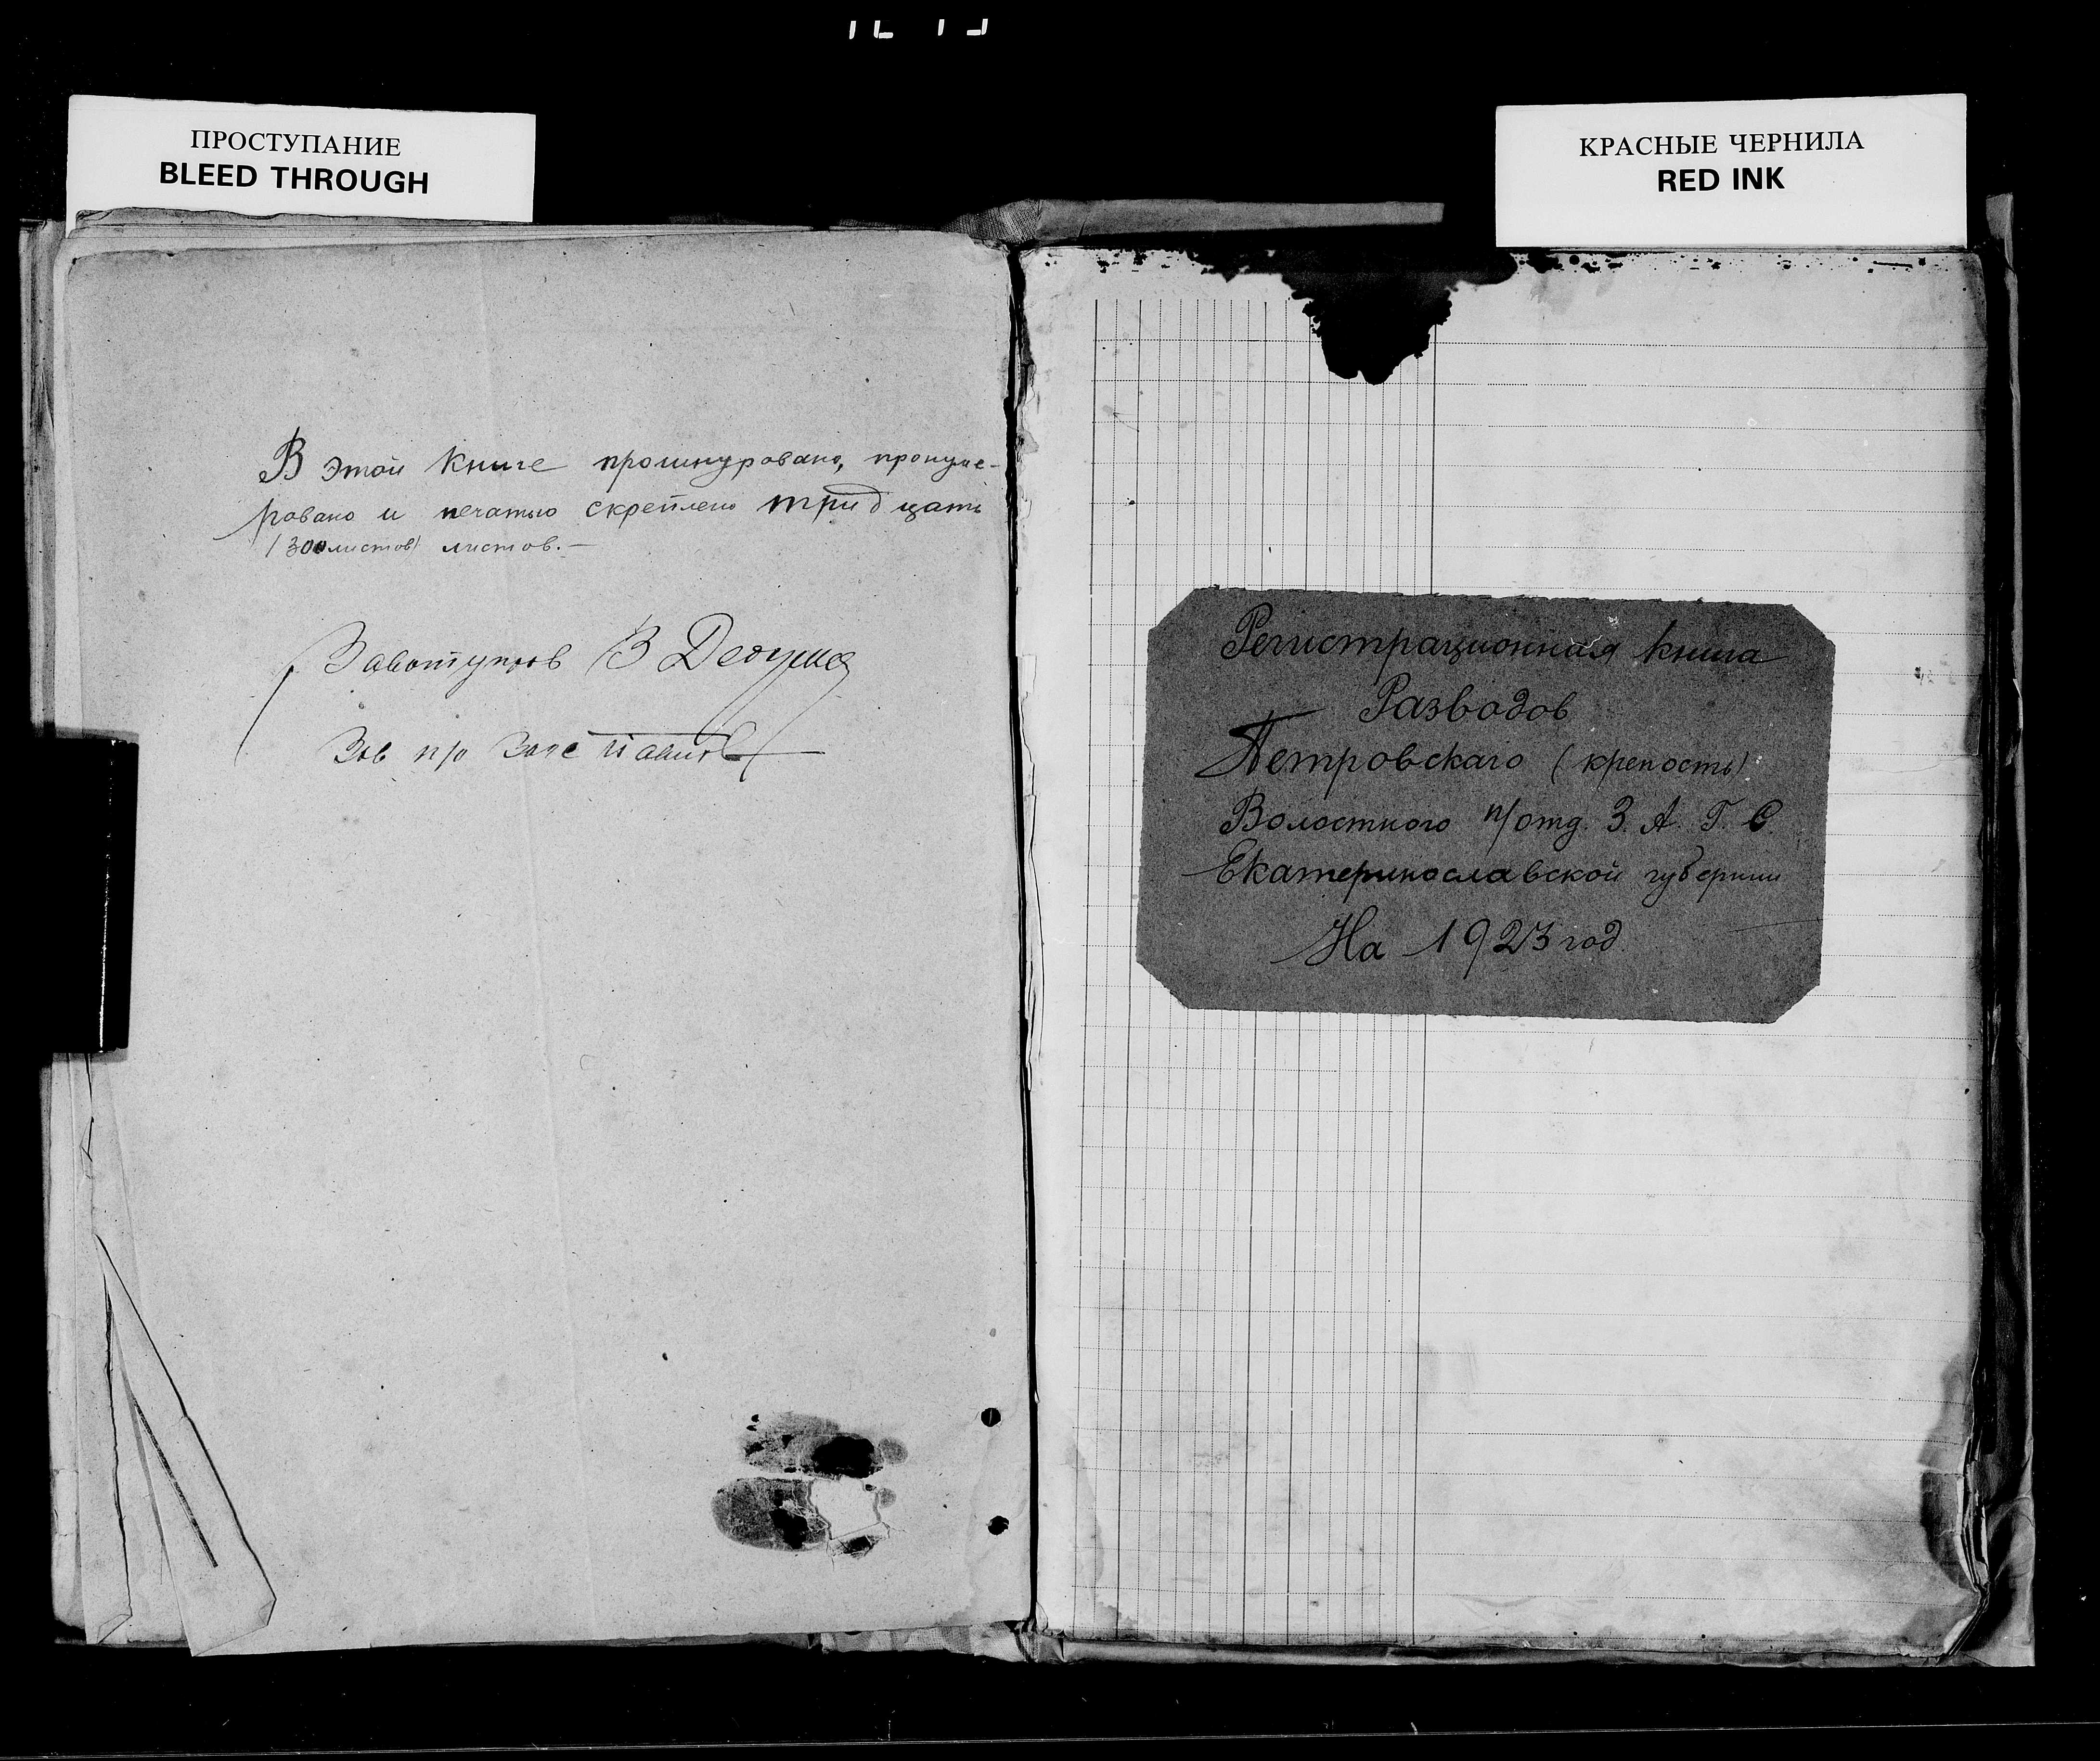 ПРОСТУПАНИЕ
BLEED THROUGH
КРАСНЫЕ ЧЕРНИЛА
RED INK
В этой книге прошнуровано, пронуме-
ровано и печатью скреплено тридцать
/30 листов/ листов.-
Зав п/о
Регистрационная книга
Разводов
Петровскаго (крепость)
Волостного п/отд. З. А. Г. С.
Екатеринославской губернии
На 1923 год